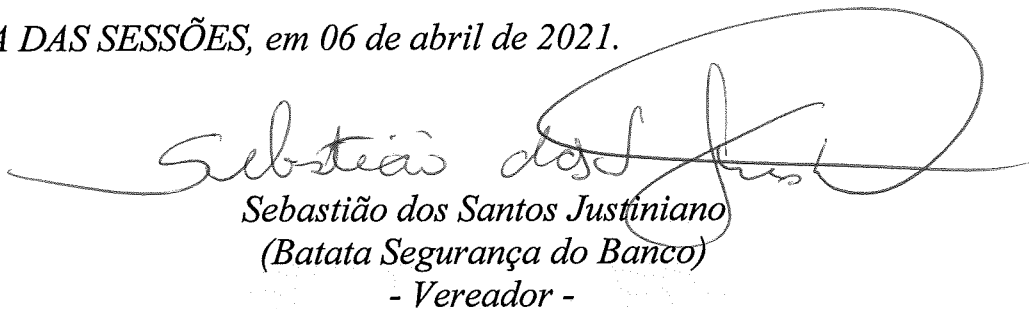 A DAS SESSÕES, em 06 de abril de 2021.
Sebastião dos
Sebastião dos Santos Justiniano
(Batata Segurança do Banco)
- Vereador -